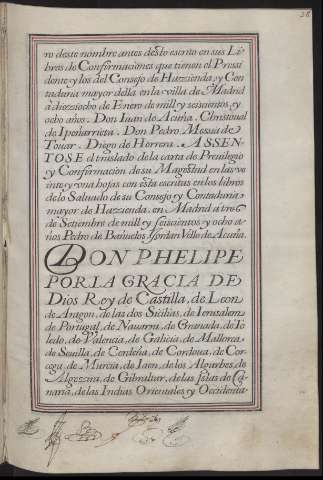 ro deste nombre antes desto escrito en sus Li
bros de Confirmaciones que tienen el Presi
dente y los del Consejo de Hazienda, y Con
taduria mayor della en la villa de Madrid
à diez i ocho de Enero de mill y seiscientos, y
ocho años. Don Iuan de Acuña. Christoual
de Ipeñarrieta. Don Pedro Messia de
Touar. Diego de Herrera. ASSEN
TOSE el traslado de la carta de Preuilegio
y Confirmacion de su Magestad en las ve
inte y una hojas con esta escritas en los libros
de lo Saluado de su Consejo y Contaduria
mayor de Hazienda. en Madrid à tres
de Setiembre de mill y seiscientos y ocho a
ños Pedro de Bañuelos Jordan Valle de Acuña.
DON PHELIPE
POR LA GRACIA DE
Dios Rey de Castilla, de Leon
de Aragon, de las dos Sicilias, de Ierusalem
de Portugal, de Nauarra, de Granada, de To
ledo, de Valencia, de Galicia, de Mallorca,
de Seuilla, de Cerdeña, de Cordoua, de Cor
cega, de Murcia, de Iaen, de los Algarbes, de
Algezira, de Gibraltar, de las Islas de Ca
naria, de las Indias Orientales y Occidenta